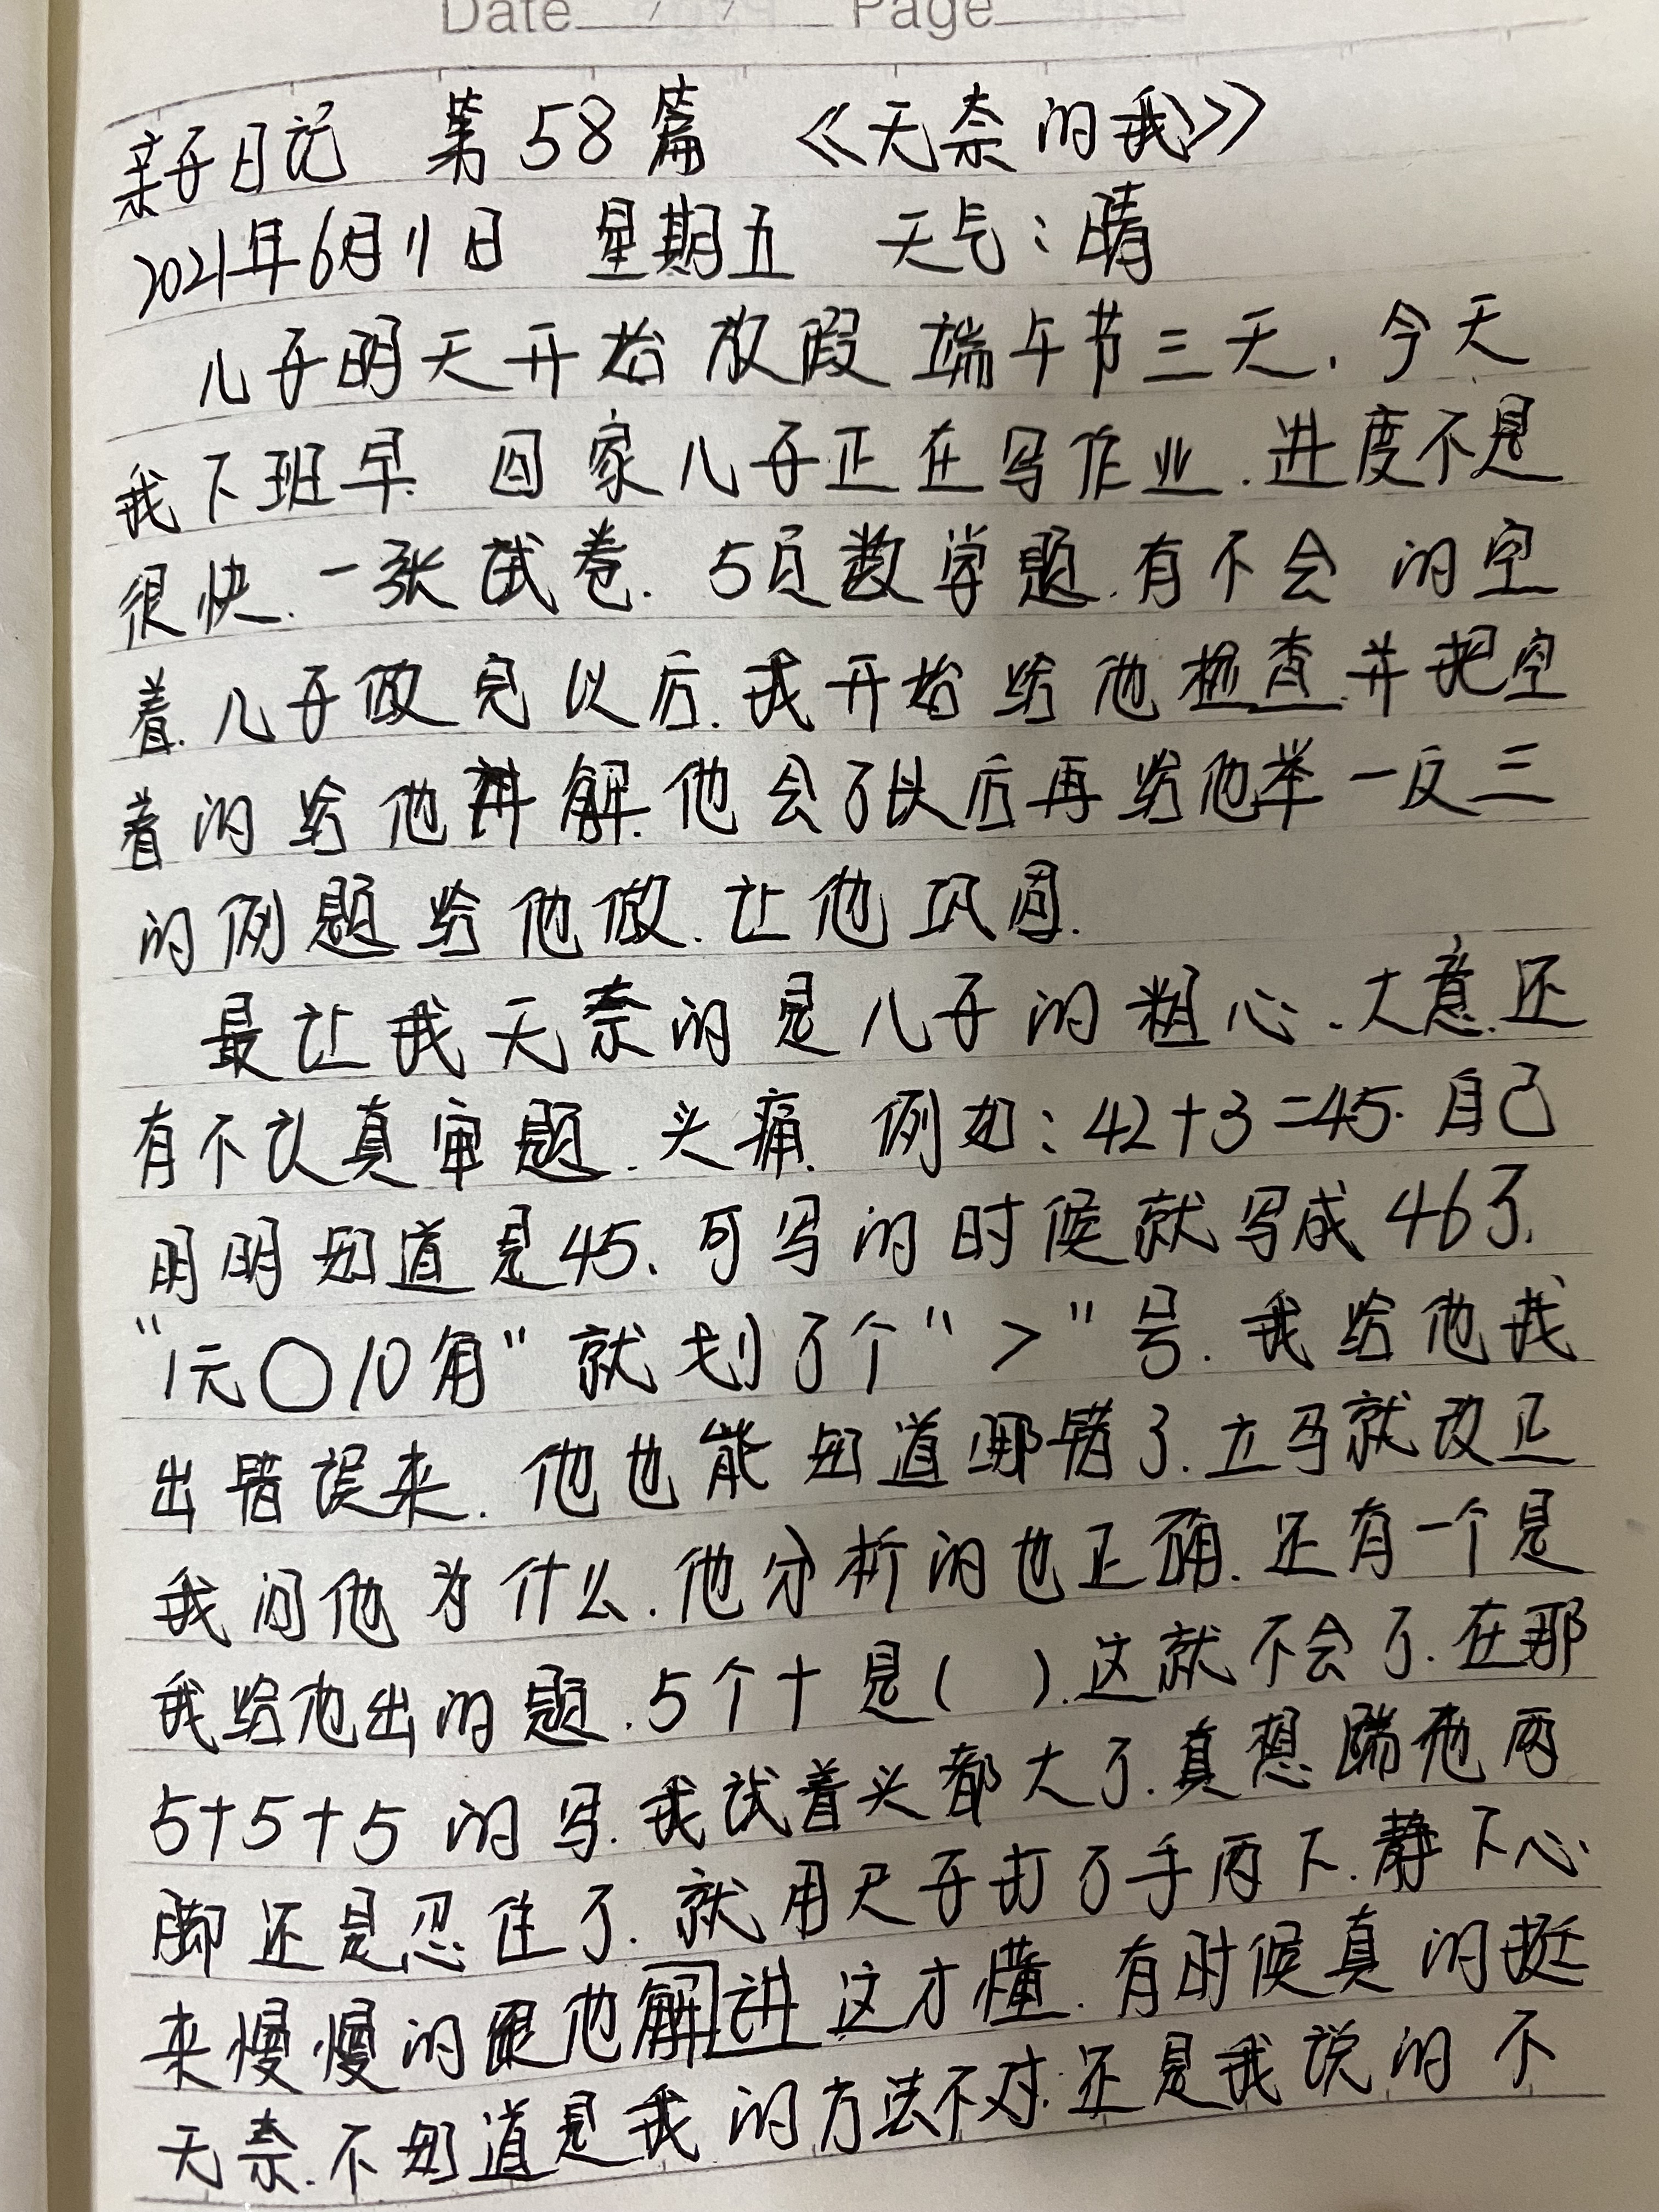 Date Page
亲子日记 第58篇 《无奈的我》
2021年6月11日 星期五 天气：晴
儿子明天开始放假端午节三天.今天
我下班早.回家儿子正在写作业.进度不是
很快.一张试卷.5页数学题.有不会的空
着.儿子做完以后.我开始给他检查并把空
着的给他讲解.他会了以后再给他举一反三
的例题给他做.让他巩固.
最让我无奈的是儿子的粗心.大意.还
有不认真审题.头痛.例如:42+3=45.自己
明明知道是45.可写的时候就写成46了.
"1元○10角"就划了个">"号.我给他找
出错误来.他也能知道哪错了.立马就改正
我问他为什么.他分析的也正确.还有一个是
我给他出的题.5个十是( ).这就不会了.在那
5+5+5的写.我试着头都大了.真想踹他两
脚还是忍住了.就用尺子打了手两下.静下心
来慢慢的跟他解讲这才懂.有时候真的挺
无奈.不知道是我的方法不对.还是我说的不